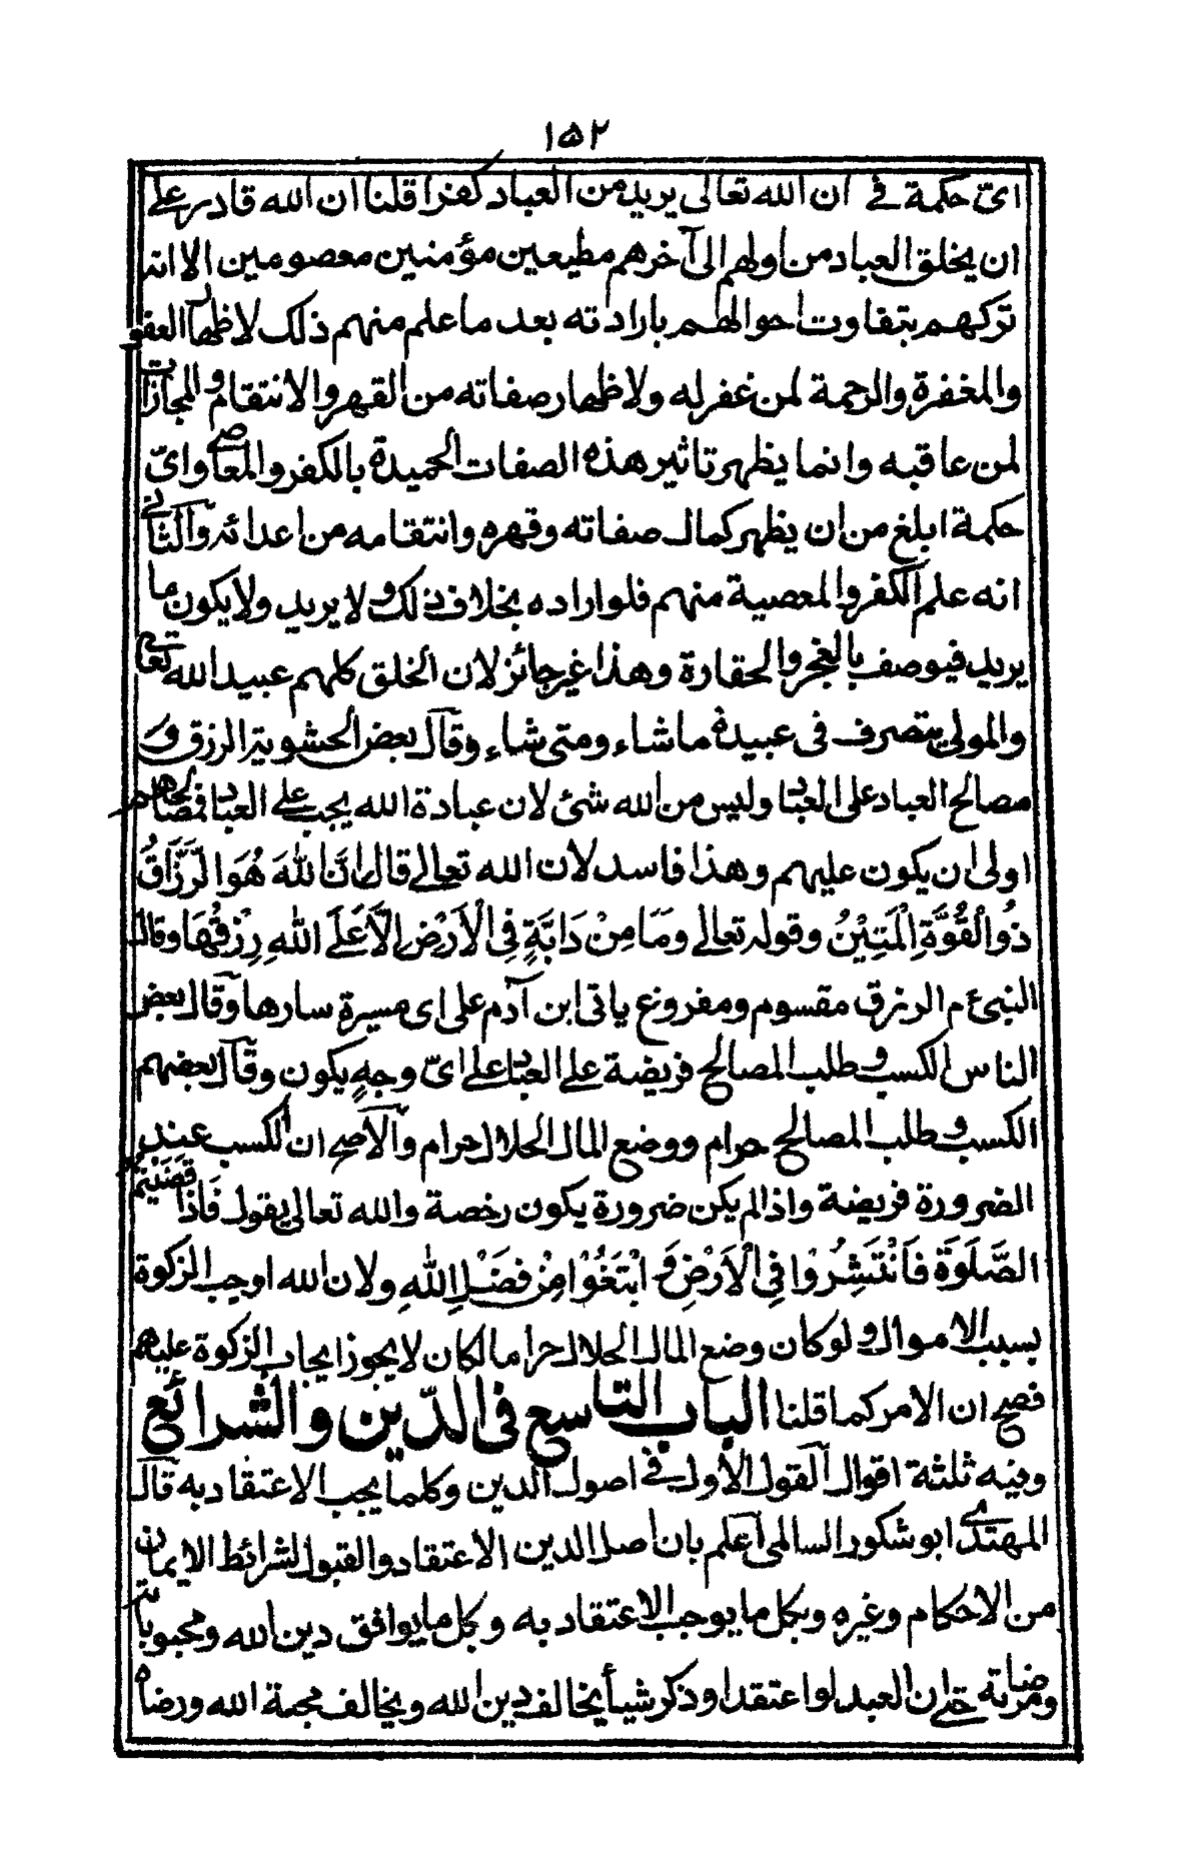 ١٥٢
اىّ حكمة فے ان الله تعالى يريد من العباد كفرا قلنا ان الله قادر علے
ان يخلق العباد من اولهم الى آخرهم مطيعين مؤمنين معصومين الا انه
تركهم بتفاوت احوالهم بارادته بعد ما علم منهم ذلك لاظهار العفو
والمغفرة والرحمة لمن غفرله ولاظهار صفاته من القهر والانتقام والمجازات
لمن عاقبه وانما يظهر تاثير هذه الصفات الحميدة بالكفر والمعاصے واىّ
حكمة ابلغ من ان يظهر كمال صفاته وقهره وانتقامه من اعدائه والثانے
انه علم الكفر والمعصية منهم فلو اراده بخلاف ذلك ولا يريد ولا يكون ما
يريد فيوصف بالعجز والحقارة وهذا غير جائز لان الخلق كلهم عبيد الله تعالے
والمولى يتصرف فى عبيده ما شاء ومتى شاء وقال بعض الحشوية الرزق و
مصالح العباد على العباد وليس من الله شئ لان عبادة الله يجب علے العباد فمصالحهم
اولى ان يكون عليهم وهذا فاسد لان الله تعالے قال اِنَّ اللهَ هُوَ الرَّزَّاقُ
ذُو الْقُوَّةِ الْمَتِيْنُ وقوله تعالے وَمَا مِنْ دَابَّةٍ فِى الْاَرْضِ اِلَّا عَلَے اللهِ رِزْقُهَا وقال
النبىء م الرزق مقسوم ومفروغ ياتى ابن آدم على اى مسيرة سارها وقال بعض
الناس الكسب وطلب المصالح فريضة علے العباد علے اىّ وجهٍ يكون وقال بعضهم
الكسب وطلب المصالح حرام ووضع المال الحلال حرام والاصح ان الكسب عند
الضرورة فريضة واذا لم يكن ضرورة يكون رخصة والله تعالى يقول فَاِذَا قَضَيْتُمُ
الصَّلَوٰةَ فَانْتَشِرُوْا فِى الْاَرْضِ وَ ابْتَغُوْا مِنْ فَضْلِ اللهِ ولان الله اوجب الزكوة
بسبب الاموال ولو كان وضع المال الحلال حراما لكان لا يجوز ايجاب الزكوة عليهم
فصح ان الامر كما قلنا الباب التاسع فى الدّين والشرائع
وفيه ثلثة اقوال القول الاول فے اصول الدين وكلما يجب الاعتقاد به قال
المهتدى ابو شكور السالمى اعلم بان اصل الدين الاعتقاد والقبول لشرائط الايمان
من الاحكام وغيره وبكل ما يوجب الاعتقاد به وبكل ما يوافق دين الله ومحبوباته
ومرضاته حتے ان العبد لو اعتقد او ذكر شيأ يخالف دين الله ويخالف محبة الله ورضاه